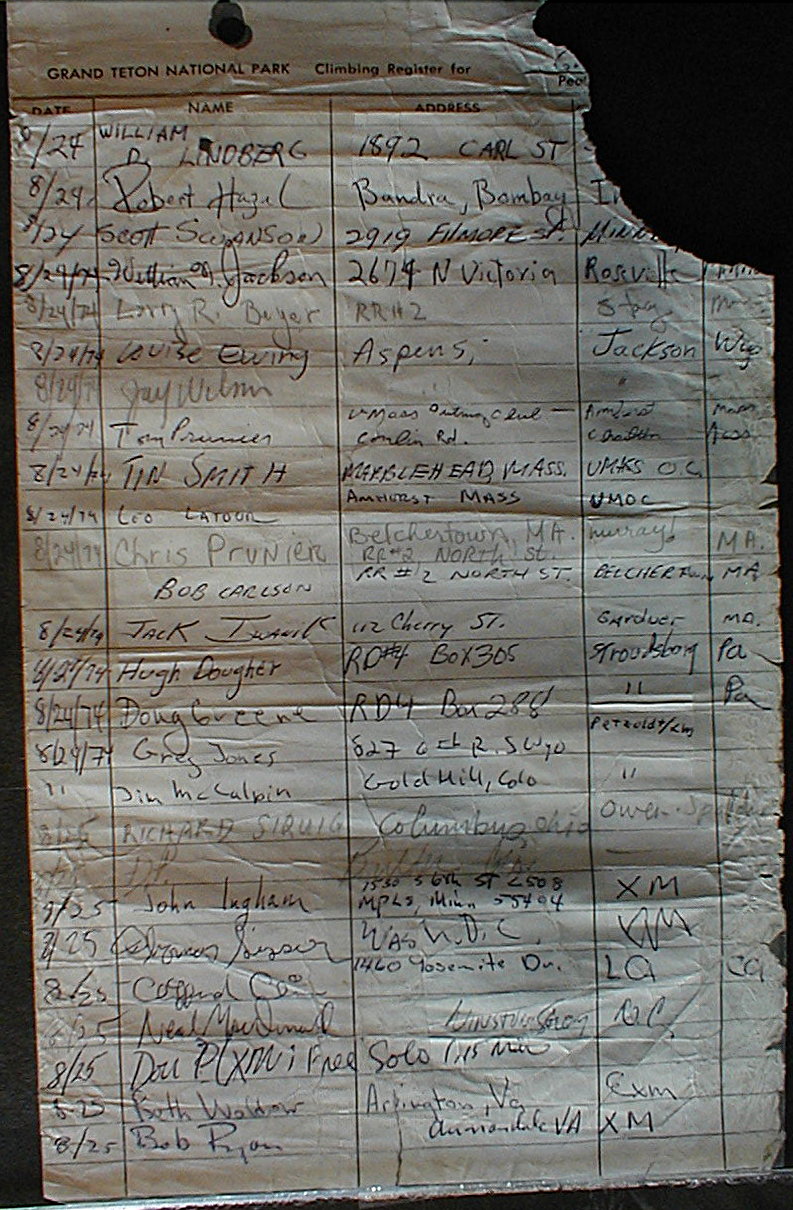 GRAND TETON NATIONAL PARK Climbing Register for
Peak
DATE NAME ADDRESS
8/24 WILLIAM D. LINDBERG 1892 CARL ST
8/24 Robert Hazel Bandra, Bombay
8/24 SCOTT SWANSON 2919 FILMORE ST.
8/24/74 William M. Jackson 2674 N Victoria Roseville
8/24/74 Larry R. Beyer RR#2
8/24/74 Louise Ewing Aspens, Jackson Wyo
8/24/74 Jay Wilson " "
8/24/74 Tom Prunier UMass Outing Club — Amherst Mass
Conlin Rd. Charlton Mass
8/24/74 TIN SMITH MARBLEHEAD, MASS. UMASS O.C.
8/24/74 LEO LATOUR AMHURST MASS UMOC
8/24/74 Chris PRUNIER Belchertown, MA. MA.
RR#2 NORTH St.
BOB CARLSON RR #2 NORTH ST. BELCHERTOWN MA
8/24/74 JACK 112 Cherry ST. Gardner MA.
8/24/74 Hugh Dougher RD#4 BOX 305 Stroudsburg Pa
8/24/74 Doug Greene RD4 Box 288 " Pa
8/24/74 Greg Jones 827 S Wyo Petzoldt/Exm
" Jim McCalpin Gold Hill, Colo "
8/25 RICHARD Columbus, Ohio Owen-Spalding
8/25 John Ingham 1530 S 6th ST C508 XM
MPLS, Minn 55404
8/25 Wash. D.C. XM
8/25 1460 Yosemite Dr. LA CA
8/25 Neal MacDonald WINSTON SALEM
8/25 Don P (XM) Free Solo
8-25 Beth Waldow Arlington, Va Exm
8/25 Bob Ryan Annandale VA XM